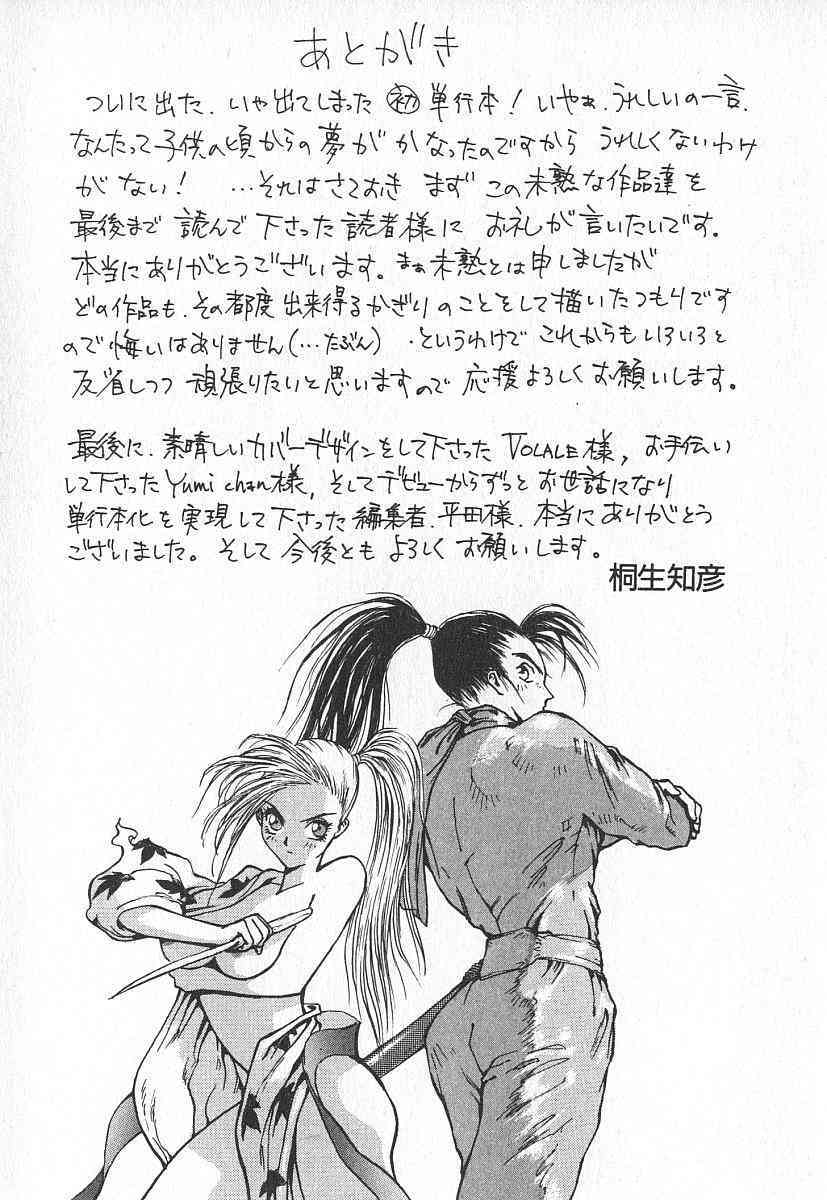 あとがき
ついに出た、いや出てしまった㊙初単行本！いやぁ、うれしいの一言、
なんたって子供の頃からの夢がかなったのですから うれしくないわけ
がない！ …それはさておき まず この未熟な作品達を
最後まで 読んで下さった読者様に お礼が言いたいです。
本当にありがとうございます。まぁ未熟とは申しましたが
どの作品も、その都度出来得るかぎりのことをして描いたつもりです
ので悔いはありません（…たぶん） ・というわけで これからもいろいろと
反省しつつ 頑張りたいと思いますので 応援よろしくお願いします。
最後に、素晴しいカバーデザインをして下さった VOLALE様, お手伝い
して下さったYumi chan様, そしてデビューからずっとお世話になり
単行本化を実現して下さった編集者、平田様、本当にありがとう
ございました。そして 今後とも よろしくお願いします。
桐生知彦